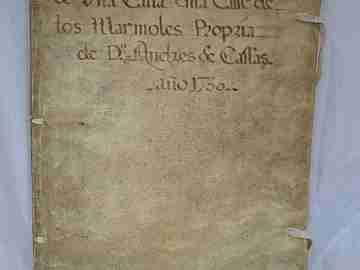 de Una Casa en la Calle de
los Marmoles Propria
de Dn. Andres de Casas.
año 1730.